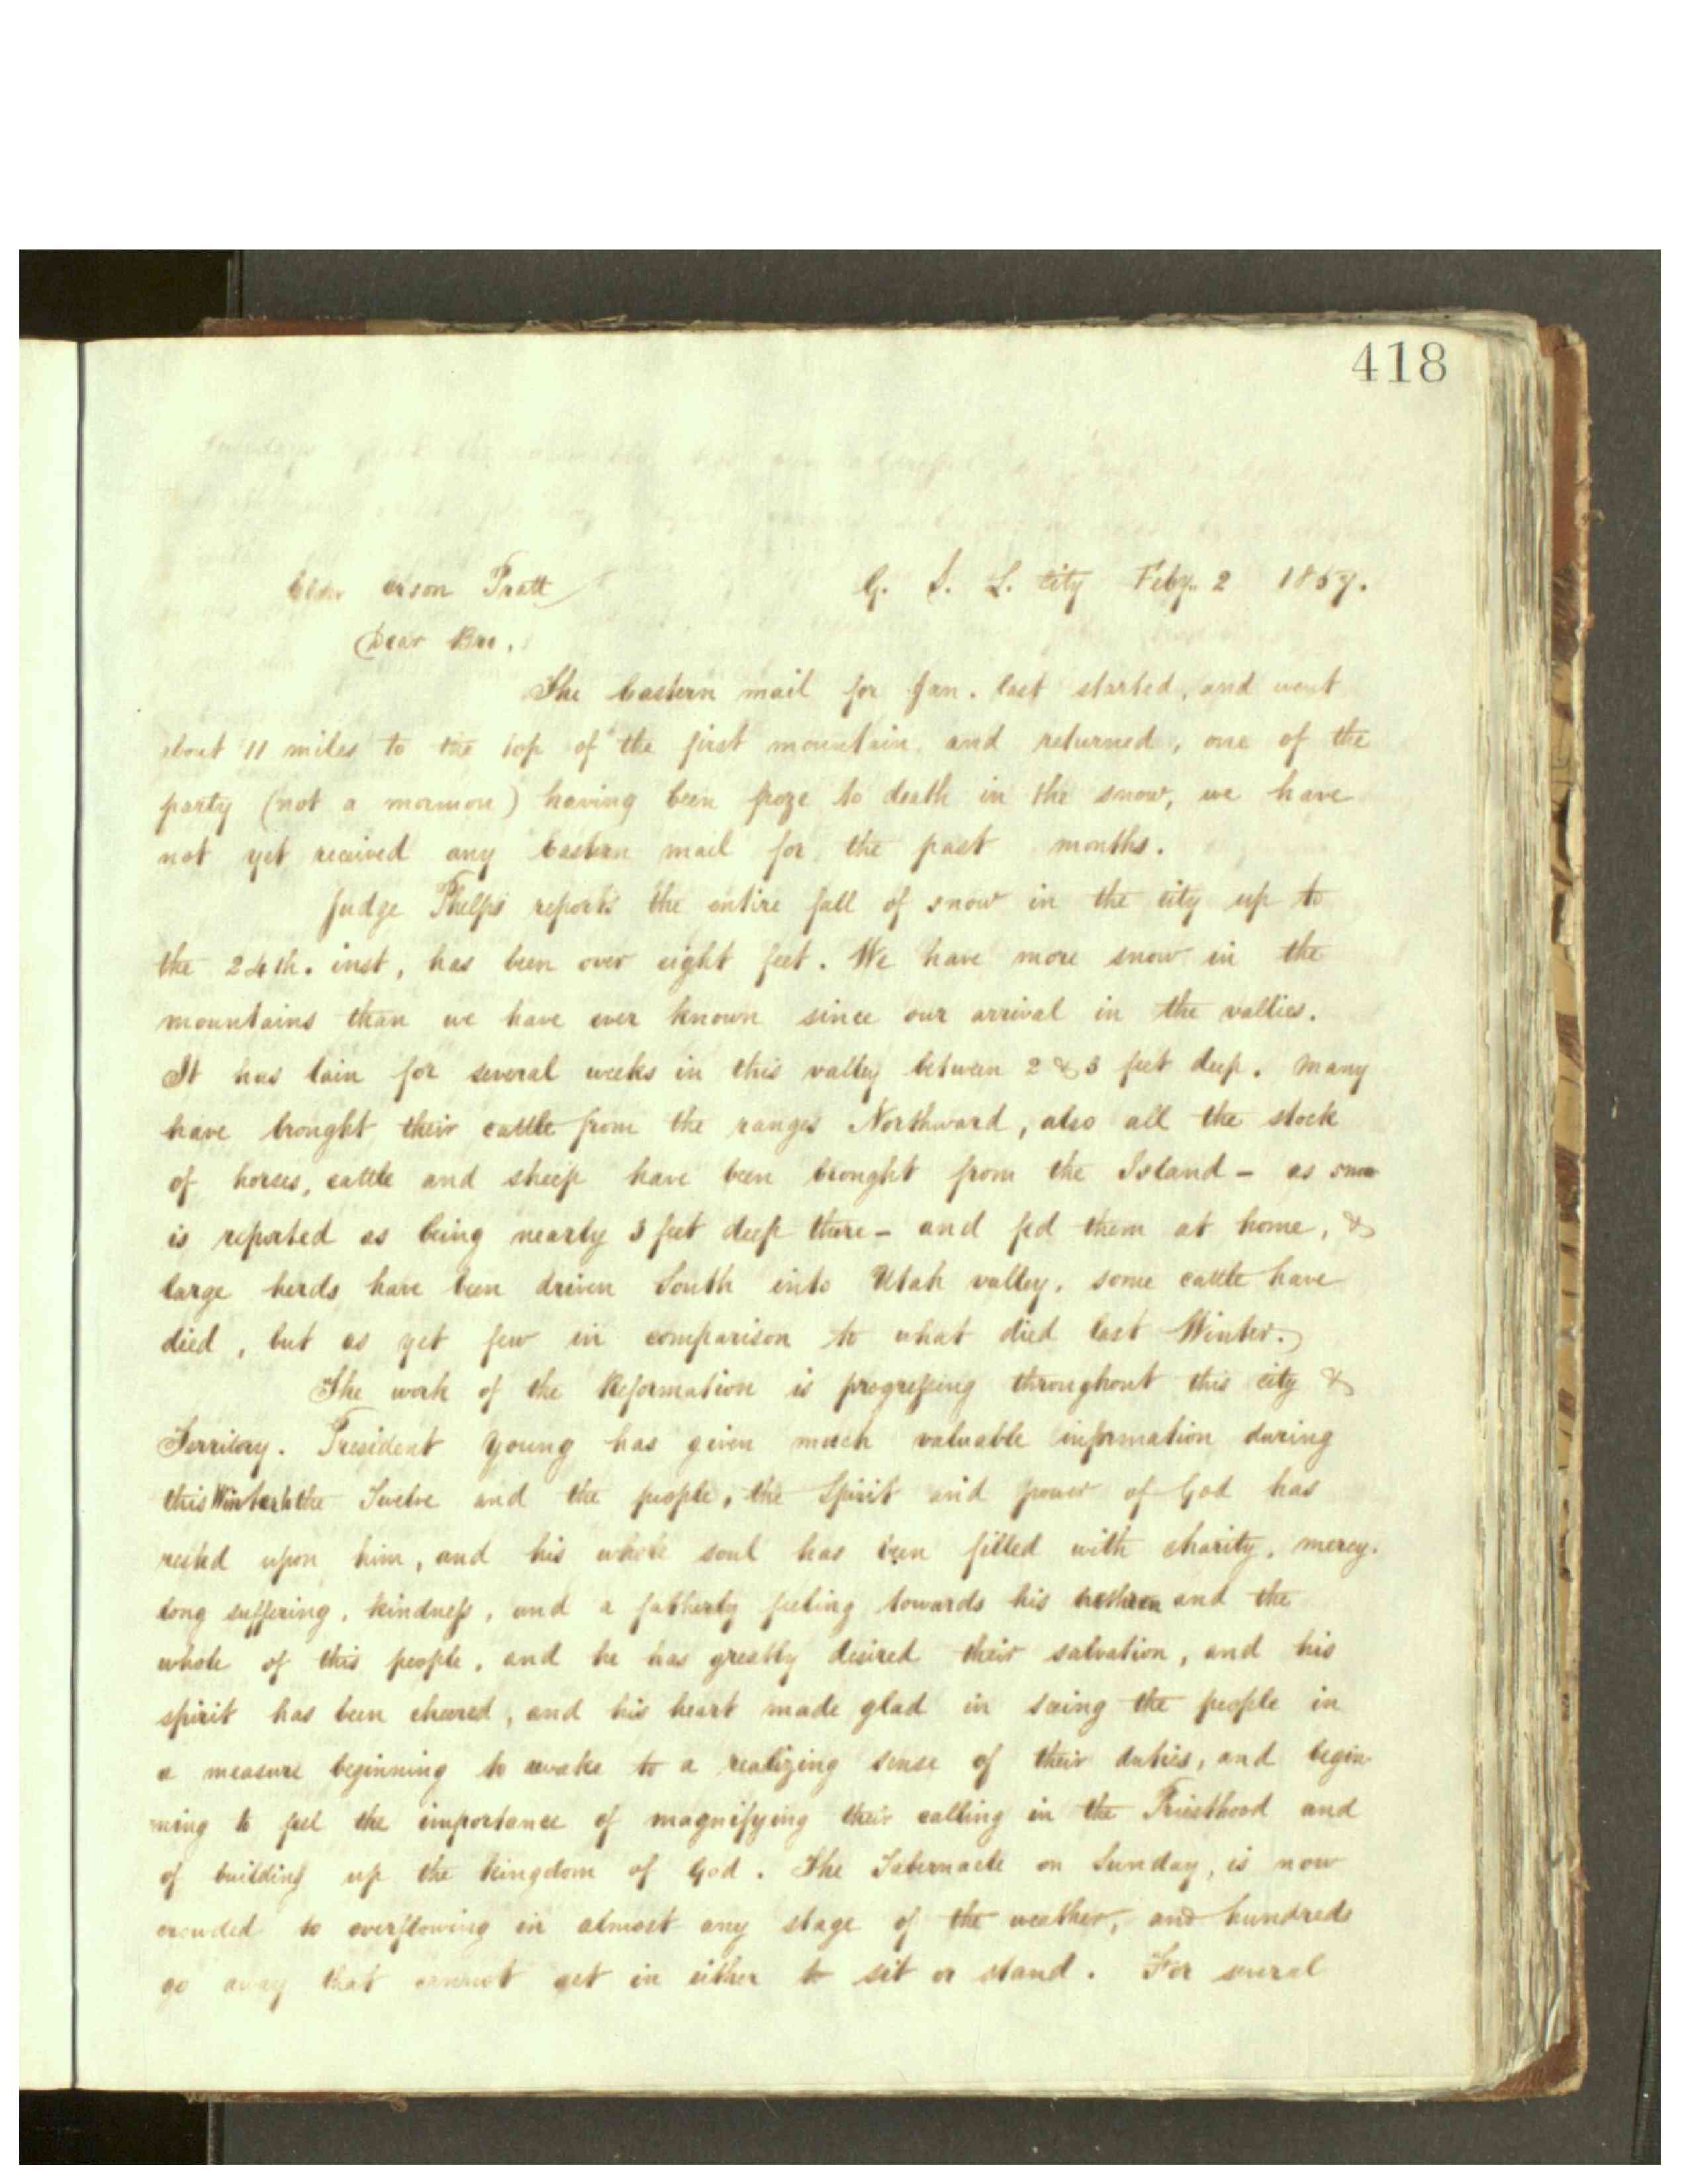 418
Elder Orson Pratt
G. S. L. City Feby. 2 1857.
Dear Bro.
The Eastern mail for Jan. last started, and went
about 11 miles to the top of the first mountain and returned, one of the
party (not a mormon) having been froze to death in the snow, we have
not yet received any Eastern mail for the past months.
Judge Phelps reports the entire fall of snow in the city up to
the 24th. inst, has been over eight feet. We have more snow in the
mountains than we have ever known since our arrival in the vallies.
It has lain for several weeks in this valley between 2 & 3 feet deep. Many
have brought their cattle from the ranges Northward, also all the stock
of horses, cattle and sheep have been brought from the Island - as snow
is reported as being nearly 3 feet deep there - and fed them at home, &
large herds have been driven South into Utah valley. some cattle have
died, but as yet few in comparison to what died last Winter.
The work of the Reformation is progressing throughout this city &
Territory. President Young has given much valuable information during
this Winter to the Twelve and the people, the Spirit and power of God has
rested upon him, and his whole soul has been filled with charity, mercy.
long suffering, kindness, and a fatherly feeling towards his brethren and the
whole of this people, and he has greatly desired their salvation, and his
spirit has been cheered, and his heart made glad in seeing the people in
a measure beginning to awake to a realizing sense of their duties, and begin-
ning to feel the importance of magnifying their calling in the Priesthood and
of building up the kingdom of God. The Tabernacle on Sunday, is now
crowded to overflowing in almost any stage of the weather, and hundreds
go away that cannot get in either to sit or stand. For several